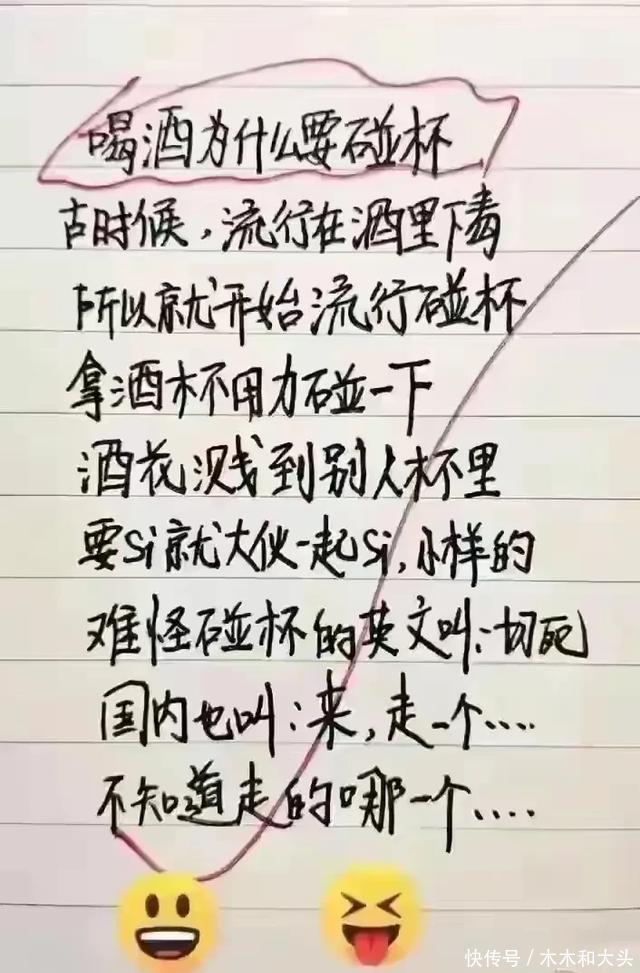 喝酒为什么要碰杯
古时候，流行在酒里下毒
所以就开始流行碰杯
拿酒杯用力碰一下
酒花溅到别人杯里
要Si就大伙一起Si，小样的
难怪碰杯的英文叫：切死
国内也叫：来，走一个····
不知道走的哪一个····
快传号／木木和大头